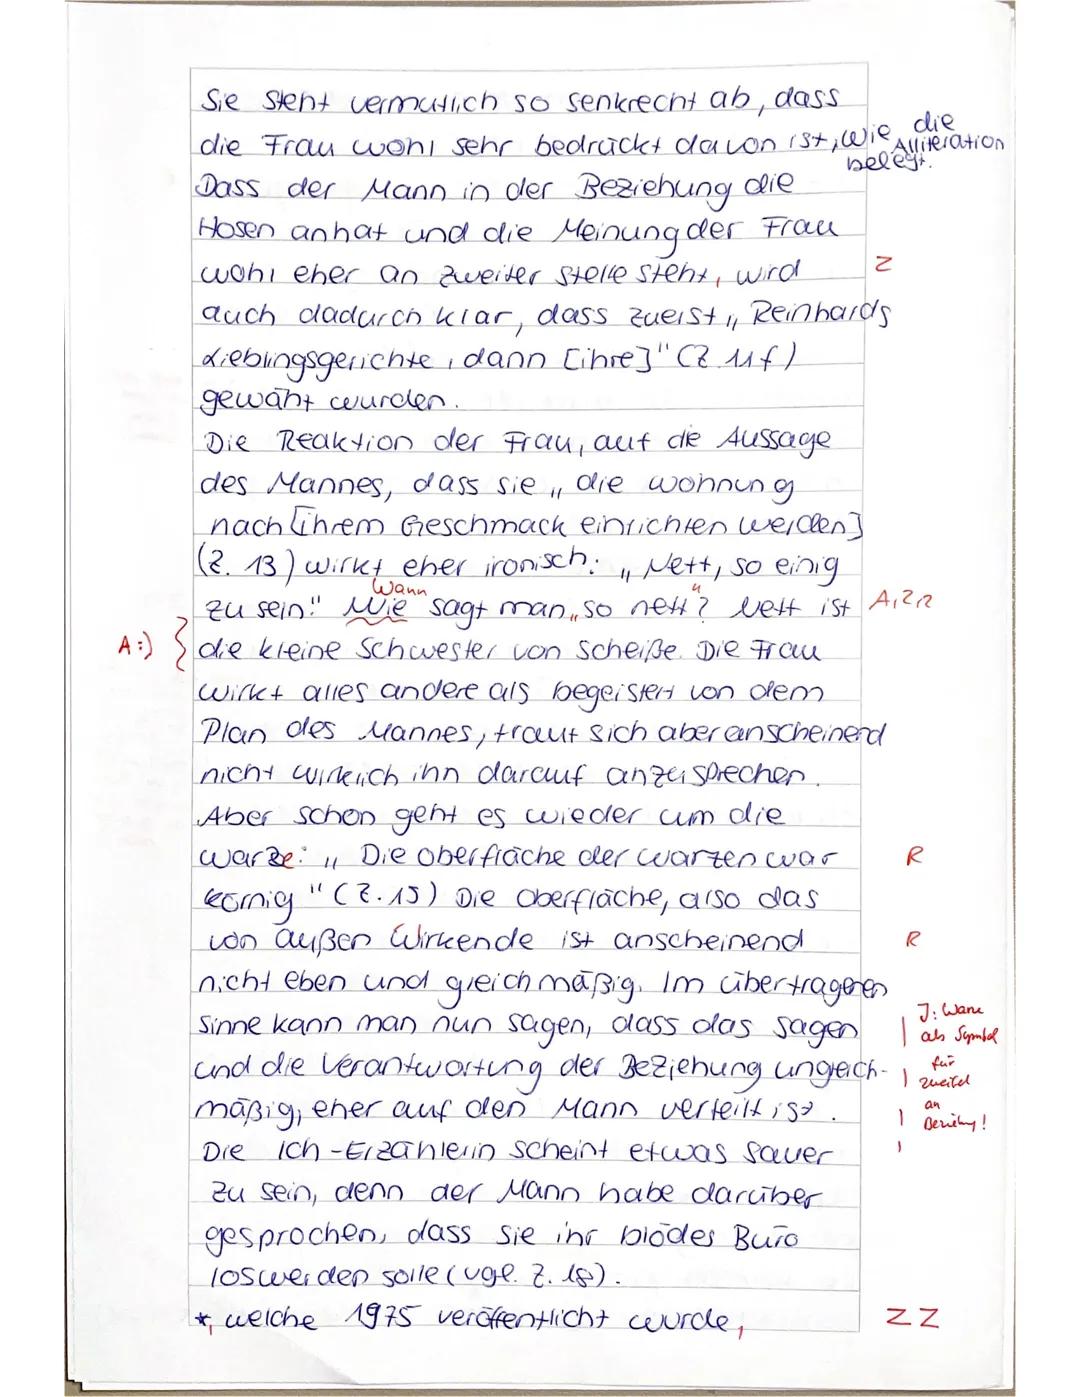 Sie steht vermutlich so senkrecht ab, dass
die Frau wohl sehr bedrückt davon ist, wie die Alliteration belegt.
Dass der Mann in der Beziehung die
Hosen anhat und die Meinung der Frau
wohl eher an zweiter Stelle steht, wird Z
auch dadurch klar, dass zuerst „Reinhards
Lieblingsgerichte, dann [ihre]" (Z. 11f)
gewählt wurden.
Die Reaktion der Frau, auf die Aussage
des Mannes, dass sie „die Wohnung
nach [ihrem Geschmack einrichten werden]
(Z. 13) wirkt eher ironisch: „Nett, so einig
Wann
zu sein!" Wie sagt man „so nett"? Nett ist A, Z, R
A:) die kleine Schwester von Scheiße. Die Frau
wirkt alles andere als begeistert von dem
Plan des Mannes, traut sich aber anscheinend
nicht wirklich ihn darauf anzusprechen.
Aber schon geht es wieder um die
Warze: „Die Oberfläche der Warzen war R
körnig" (Z. 15) Die Oberfläche, also das
von außen Wirkende ist anscheinend R
nicht eben und gleichmäßig. Im übertragenen
Sinne kann man nun sagen, dass das sagen
und die Verantwortung der Beziehung ungleich-
mäßig, eher auf den Mann verteilt ist.
J: Warze
als Symbol
für
Zweifel
an
Beziehung!
Die Ich-Erzählerin scheint etwas sauer
zu sein, denn der Mann habe darüber
gesprochen, dass sie ihr blödes Büro
loswerden solle (vgl. Z. 18).
*, welche 1975 veröffentlicht wurde, ZZ